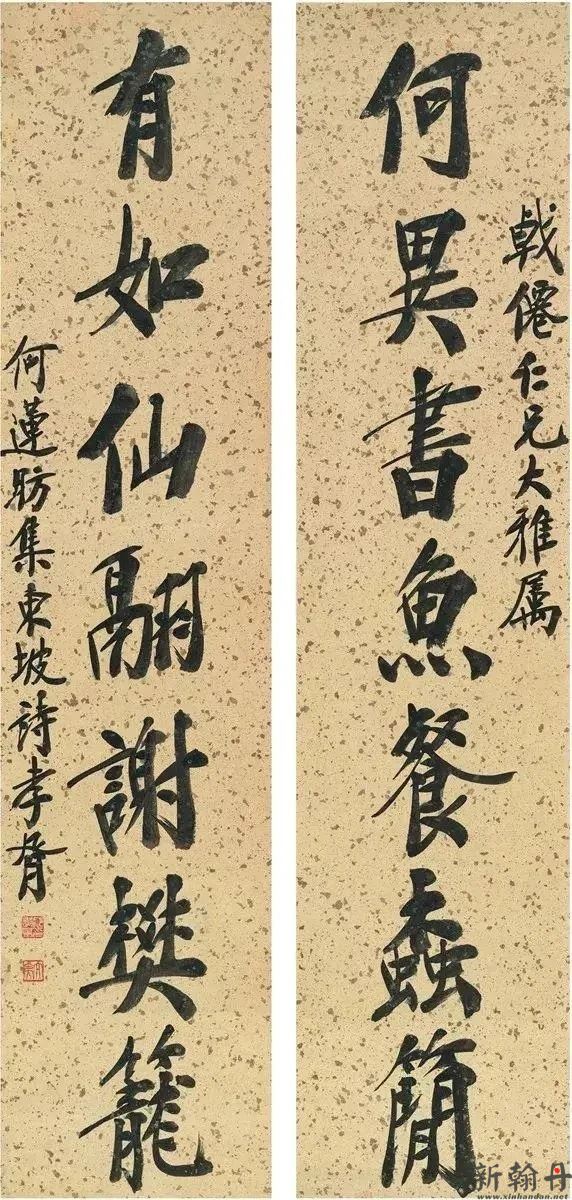 戟僊仁兄大雅属
何異書魚餐蠹簡
有如仙翮謝樊籠
何蓮舫集東坡詩孝胥
新翰丹
www.xinhandan.net